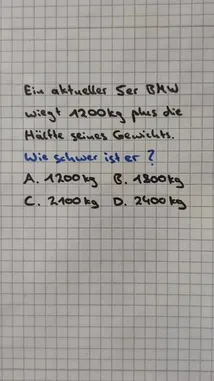 Ein aktueller 5er BMW
wiegt 1200kg plus die
Hälfte seines Gewichts.
Wie schwer ist er?
A. 1200kg B. 1800kg
C. 2100kg D. 2400kg